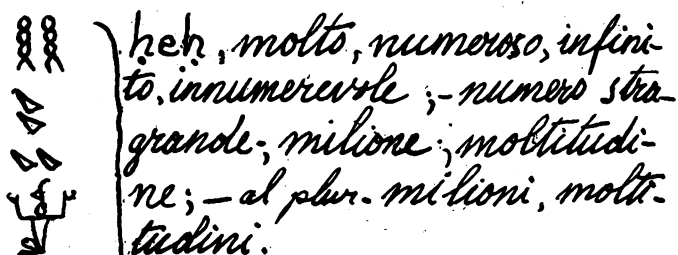 ḥeḥ, molto, numeroso, infini-
to, innumerevole ;- numero stra-
grande-; milione; moltitudi-
ne; - al plur. milioni, molti-
tudini.